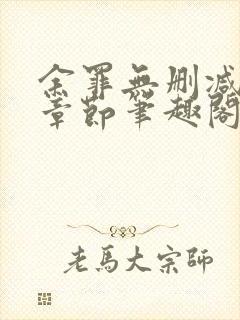 余罪無刪減
章節筆趣閣
老馬大宗師